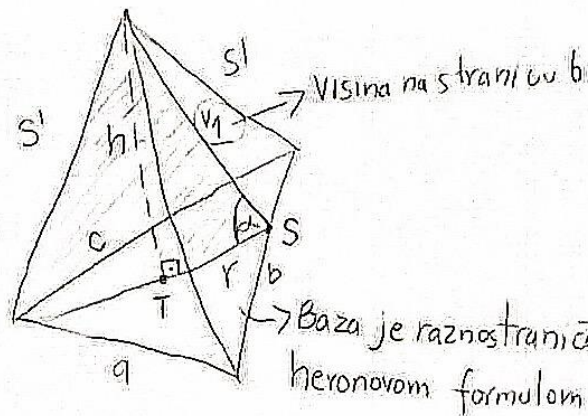 S'
Visina na stranicu b
S'
V1
h
c
α
S
r
b
T
Baza je raznostranič
heronovom formulom
a